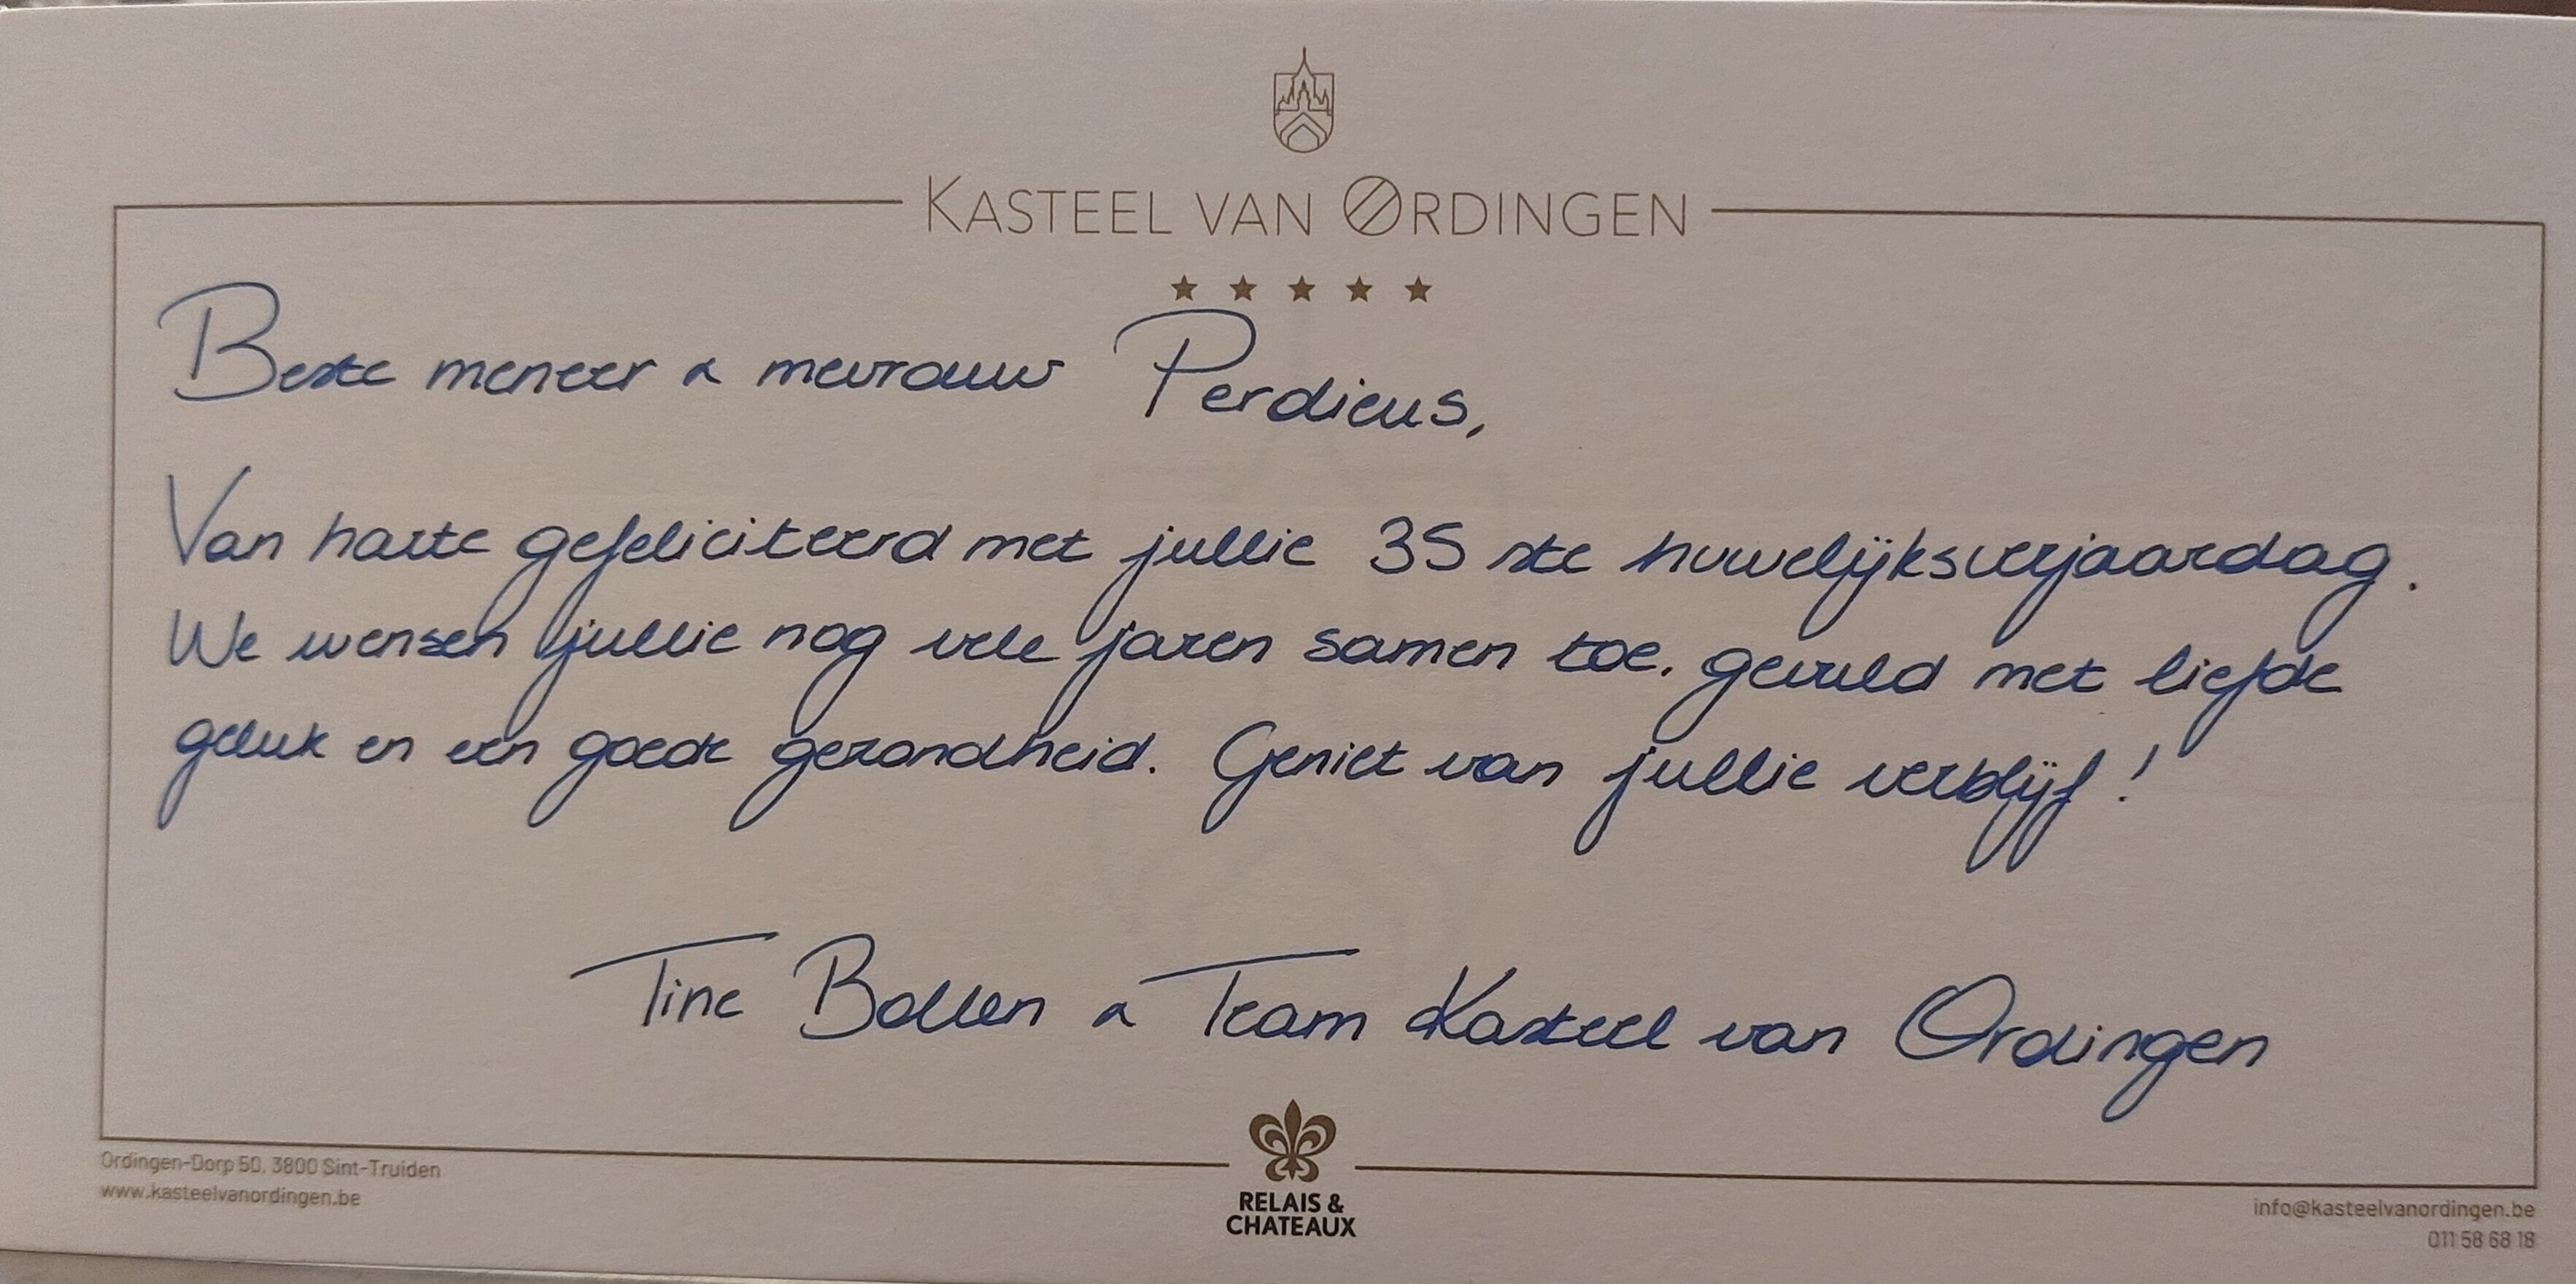 KASTEEL VAN ORDINGEN
Beste meneer & mevrouw Perdieus,
Van harte gefeliciteerd met jullie 35 ste huwelijksverjaardag.
We wensen jullie nog vele jaren samen toe. gevuld met liefde
geluk en een goede gezondheid. Geniet van jullie verblijf!
Tine Bollen & Team Kasteel van Ordingen
Ordingen-Dorp 50, 3800 Sint-Truiden
www.kasteelvanordingen.be
RELAIS &
CHATEAUX
info@kasteelvanordingen.be
011 58 68 18